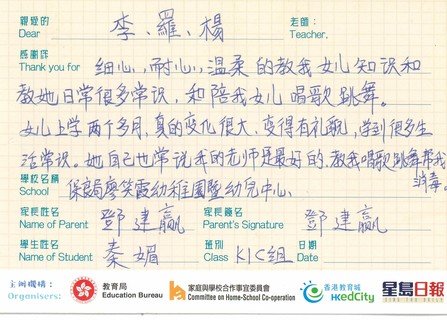 親愛的 李、羅、楊 老師：
Dear Teacher,
感謝你
Thank you for 细心、耐心、温柔的教我女儿知识和
教她日常很多常识，和陪我女儿唱歌跳舞。
女儿上学两个多月，真的变化很大，变得有礼貌，学到很多生
活常识。她自己也常说我的老师是最好的，教我唱歌跳舞帮我
消毒。
學校名稱
School 保良局廖笑霞幼稚園暨幼兒中心.
家長姓名 家長簽名
Name of Parent 鄧建贏 Parent's Signature 鄧建贏
學生姓名 班別 日期
Name of Student 秦媚 Class K1C组 Date
主辦機構：
Organisers:
教育局
Education Bureau
家庭與學校合作事宜委員會
Committee on Home-School Co-operation
香港教育城
HKedCity
星島日報
SING TAO DAILY